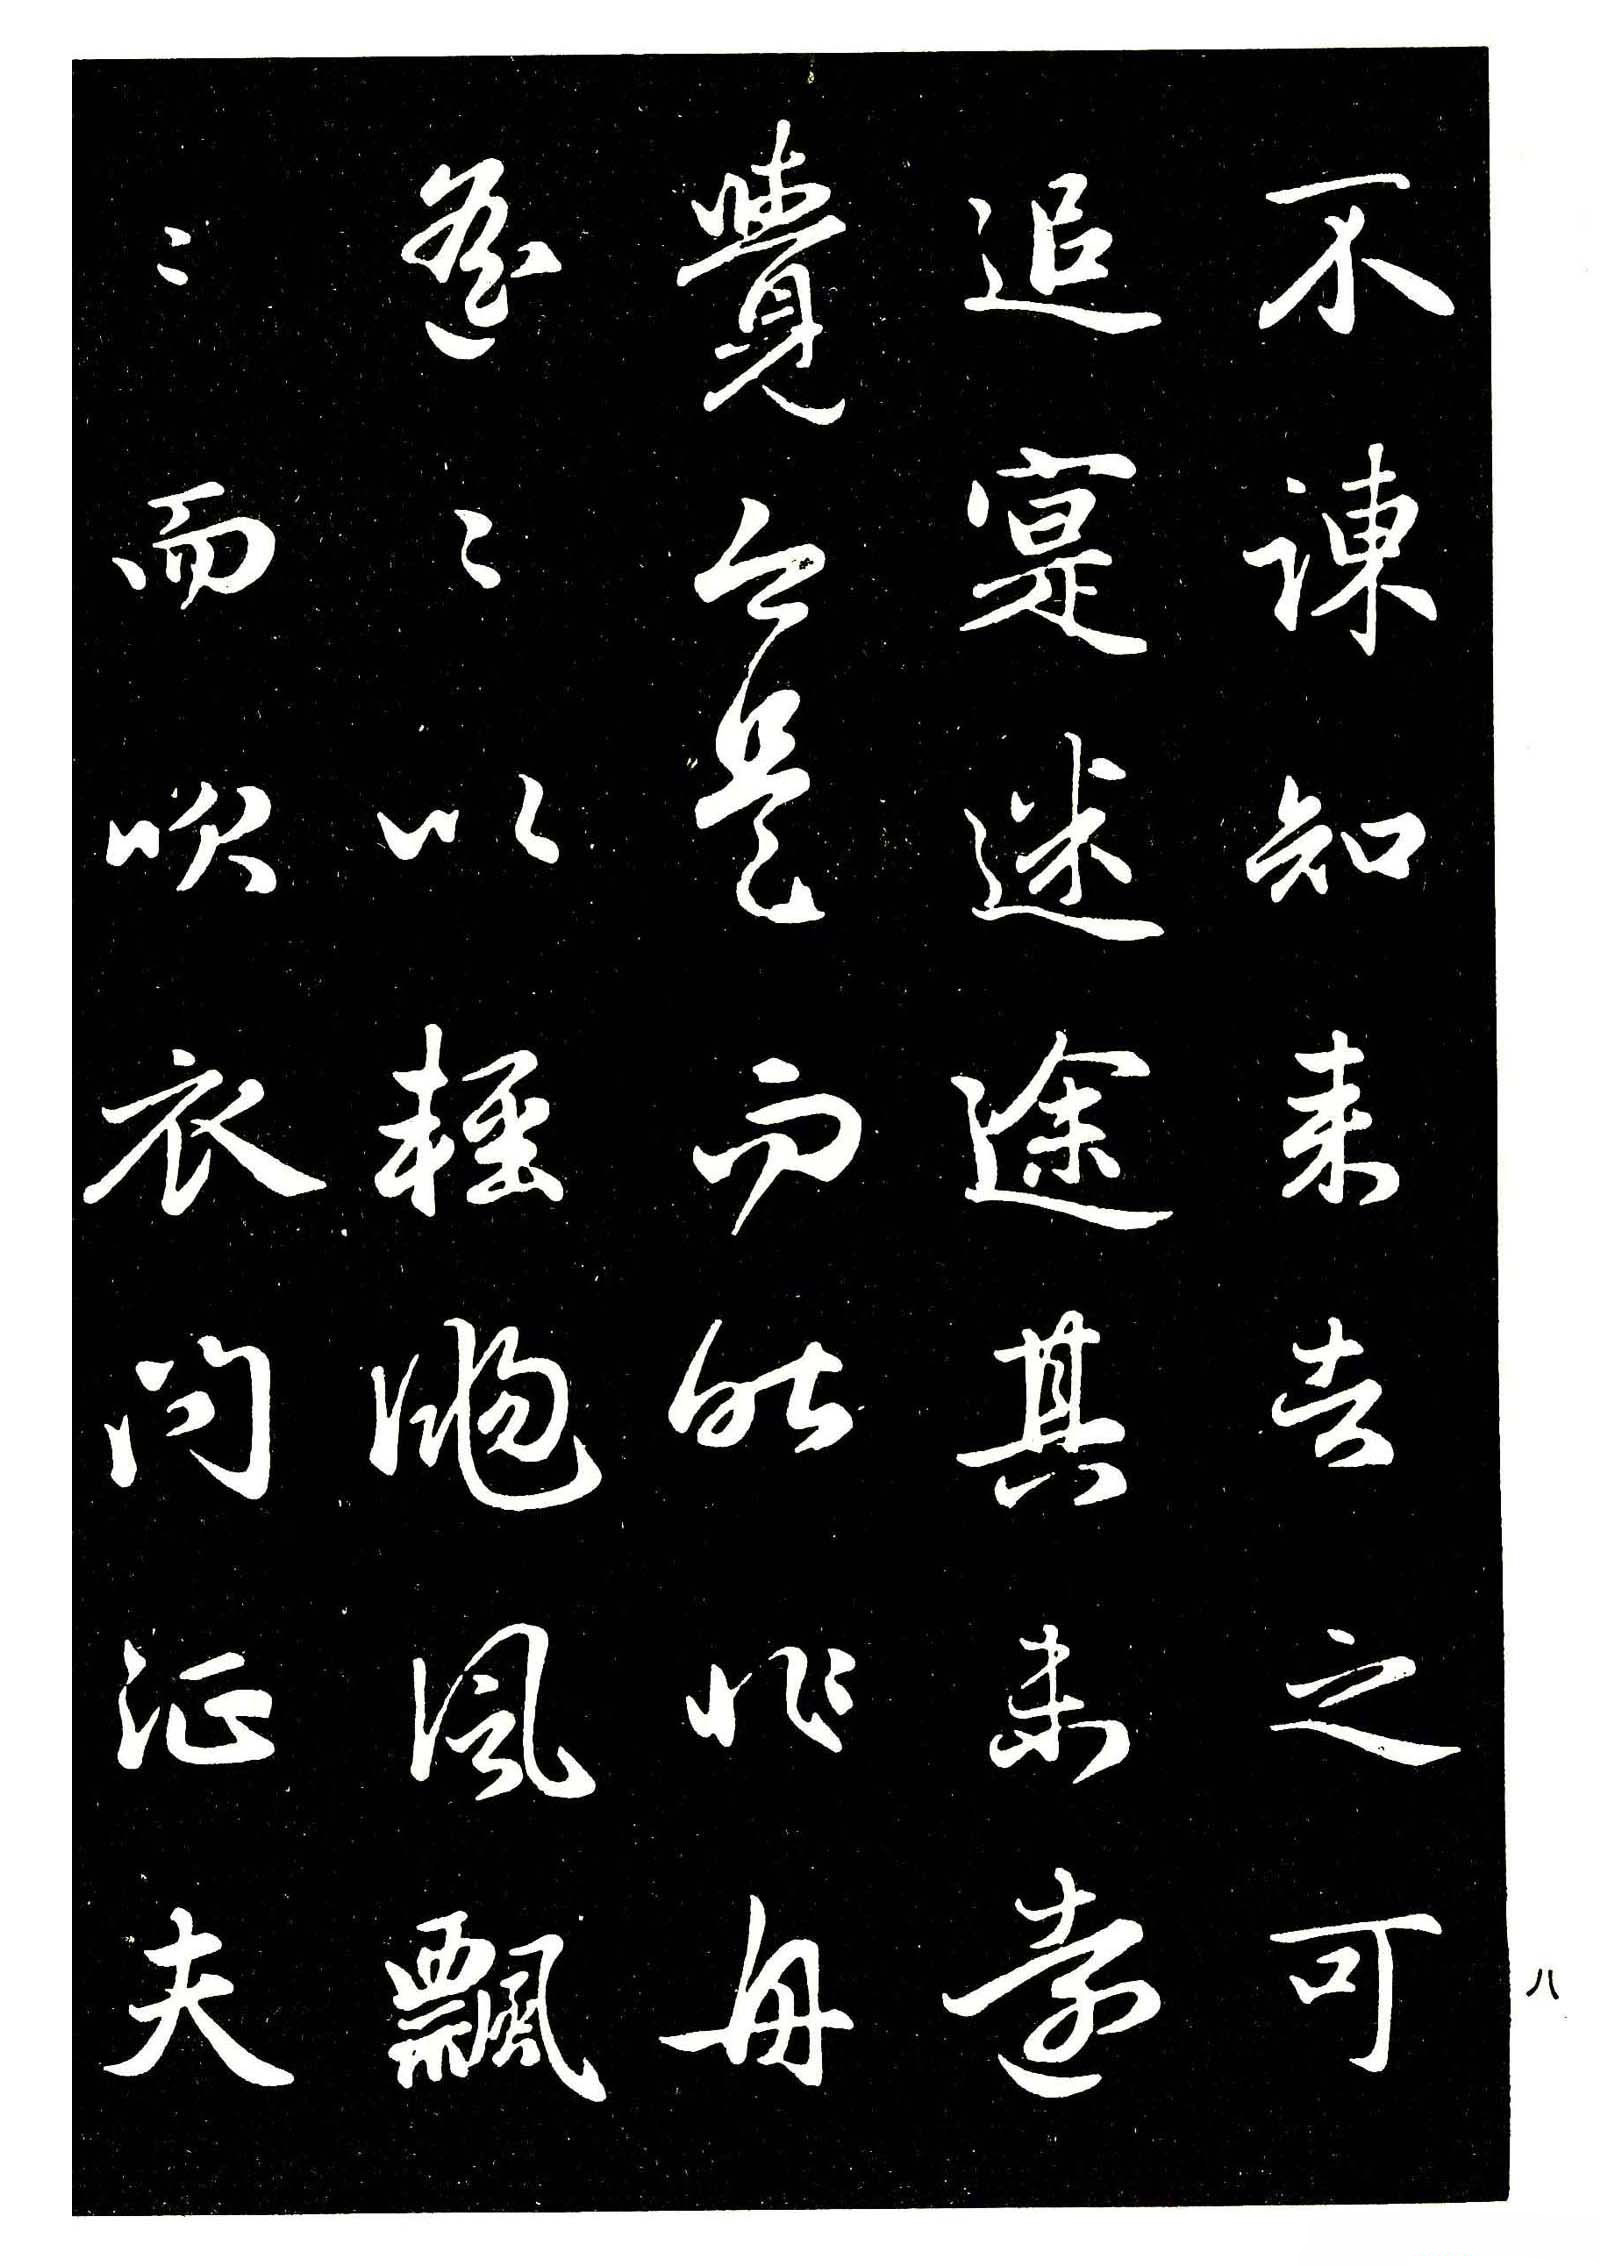 不諫知来者之可
追寔迷途其未遠
覺今是而昨非舟
遙〻以輕颺風飄
〻而吹衣問征夫
八